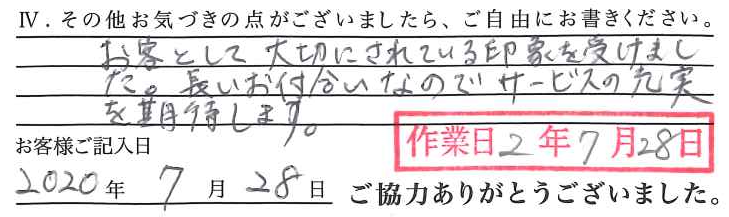 Ⅳ．その他お気づきの点がございましたら、ご自由にお書きください。
お客として大切にされている印象を受けまし
た。長いお付合いなのでサービスの充実
を期待します。
お客様ご記入日
作業日2年7月28日
2020年 7月 28日 ご協力ありがとうございました。